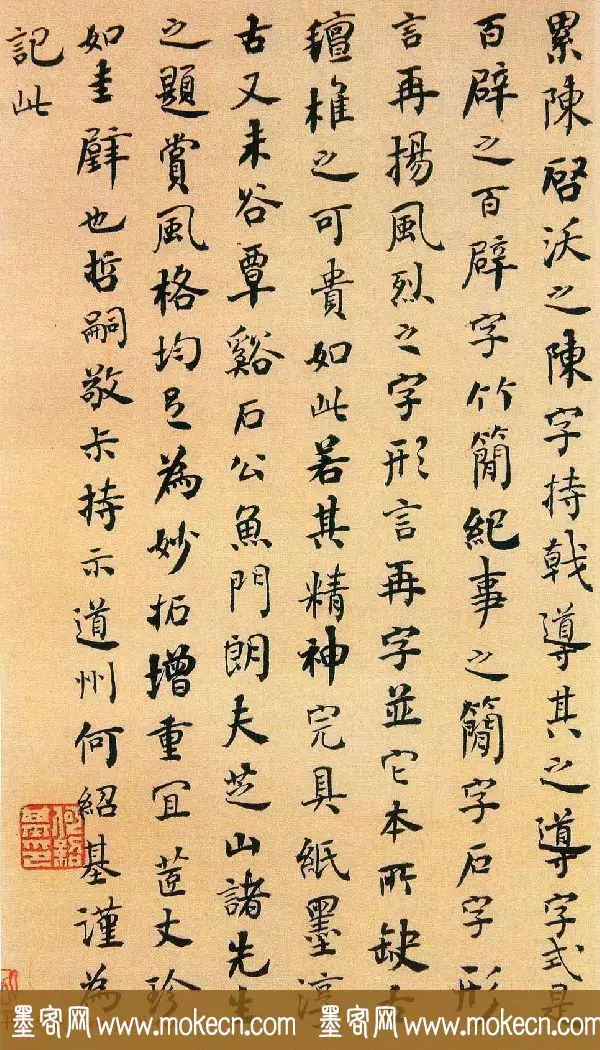 累陳啓沃之陳字持戟導其之導字式是
百辟之百辟字竹簡紀事之簡字石字形
言再揚風烈之字形言再字並它本所缺
氊椎之可貴如此若其精神完具紙墨淳
古又未谷覃谿石公魚門朗夫芝山諸先生
之題賞風格均足為妙拓增重宜芷丈珍
如圭璧也哲嗣敬 持示道州何紹基謹為
記此
何紹基
墨客网 www.mokecn.com 墨客网 www.mokecn.com 墨客网